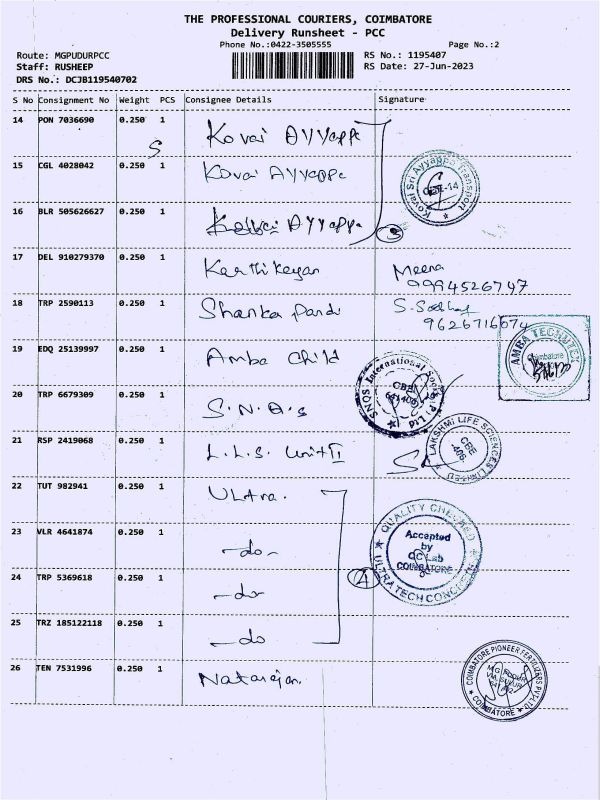 THE PROFESSIONAL COURIERS, COIMBATORE
Delivery Runsheet - PCC
Phone No.:0422-3505555 Page No.:2
Route: MGPUDURPCC RS No.: 1195407
Staff: RUSHEEP RS Date: 27-Jun-2023
DRS No.: DCJB119540702
S No Consignment No Weight PCS Consignee Details Signature
14 PON 7036690 0.250 1 Kovai Ayyappa
S
15 CGL 4028042 0.250 1 Kovai Ayyappa
Kovai Sri Ayyappa Transport
CBE-14
16 BLR 505626627 0.250 1 Kovai Ayyappa 3
17 DEL 910279370 0.250 1 Karthikeyan Meena
9994526747
18 TRP 2590113 0.250 1 Shanka Pandi
9626716674
19 EDQ 25139997 0.250 1 Amba Child
AMBA TECHNITEX
Coimbatore
20 TRP 6679309 0.250 1 S.N.Q.S
SNQS International Socks P. Ltd
CBE
21 RSP 2419068 0.250 1 L.L.S. Unit II
LAKSHMI LIFE SCIENCES LIMITED
CBE
22 TUT 982941 0.250 1 Ultra.
23 VLR 4641874 0.250 1 -do-
QUALITY CHECKED
Accepted
by
QC Lab
COIMBATORE
ULTRA TECH CONCRETE
24 TRP 5369618 0.250 1 -do- 4
25 TRZ 185122118 0.250 1 -do
26 TEN 7531996 0.250 1 Natarajan.
COIMBATORE PIONEER FERTILIZERS PVT LTD
COIMBATORE